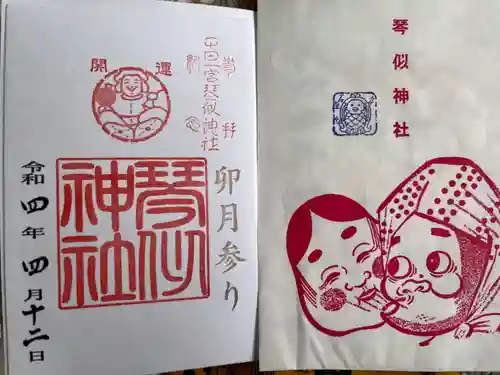 琴似神社
開運
正一位琴似神社
参拝
記念
卯月参り
琴似神社
令和四年四月十二日